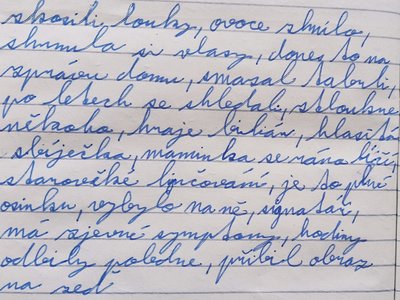 skosili louky, ovoce shnilo,
shrnula si vlasy, dones to na
zprávu domu, smazal tabuli,
po letech se shledali, stloukne
někoho, hraje biliár, hlasitá
sbíječka, maminka se ráno líčí,
starověké líčování, je to plné
osinku, nezbylo na ně, signatář,
má zjevné symptomy, hodiny
odbily poledne, přibil obraz
na zeď